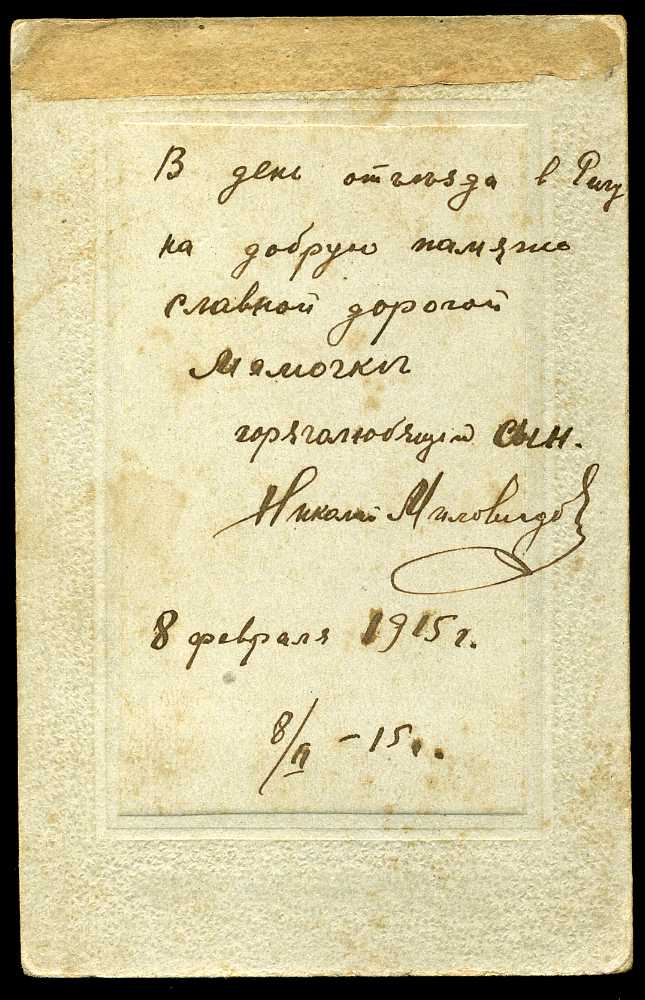 В день отъѣзда в Ригу
на добрую память
славной дорогой
Мамочки
горячолюбящий сын.
Николай Миловидов
8 февраля 1915 г.
8/II – 15 г.